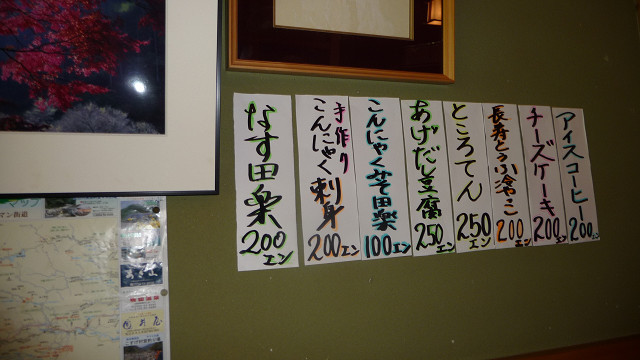 アイスコーヒー
200エン
チーズケーキ
200エン
長寿とうふ冷やっこ
200エン
ところてん
250エン
あげだし豆腐
250エン
こんにゃくみそ田楽
100エン
手作り
こんにゃく刺身
200エン
なす田楽
200エン
マン街道